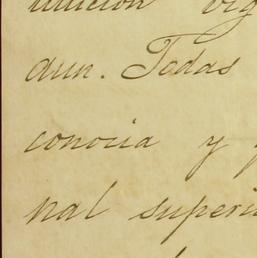 aun. Todas
conocia y
nal superi